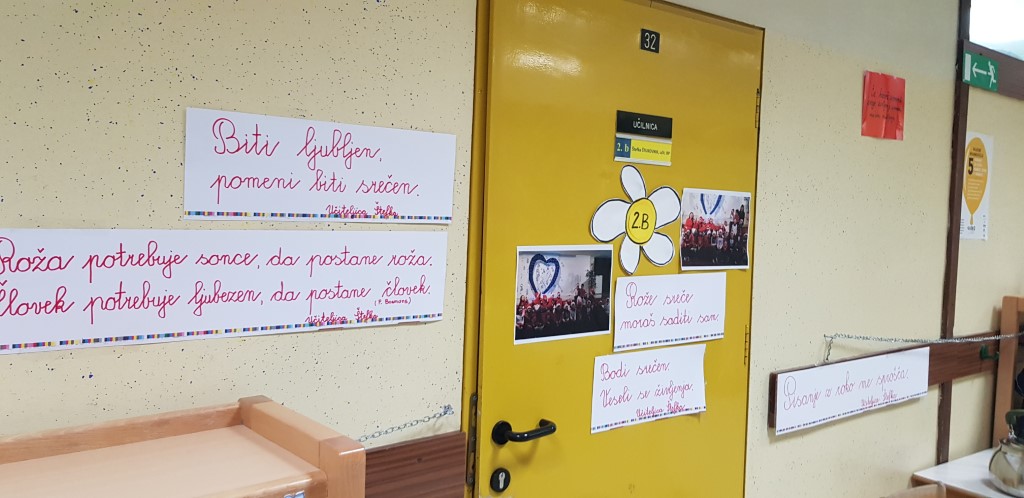 Biti ljubljen,
pomeni biti srečen.
Učiteljica Štefka
Roža potrebuje sonce, da postane roža.
Človek potrebuje ljubezen, da postane človek.
(P. Bosmans)
Učiteljica Štefka
32
UČILNICA
2. b
2.B
Rože sreče
moraš saditi sam.
Bodi srečen.
Veseli se življenja.
Učiteljica Štefka
Pisanje z roko ne sprošča.
Učiteljica Štefka
5